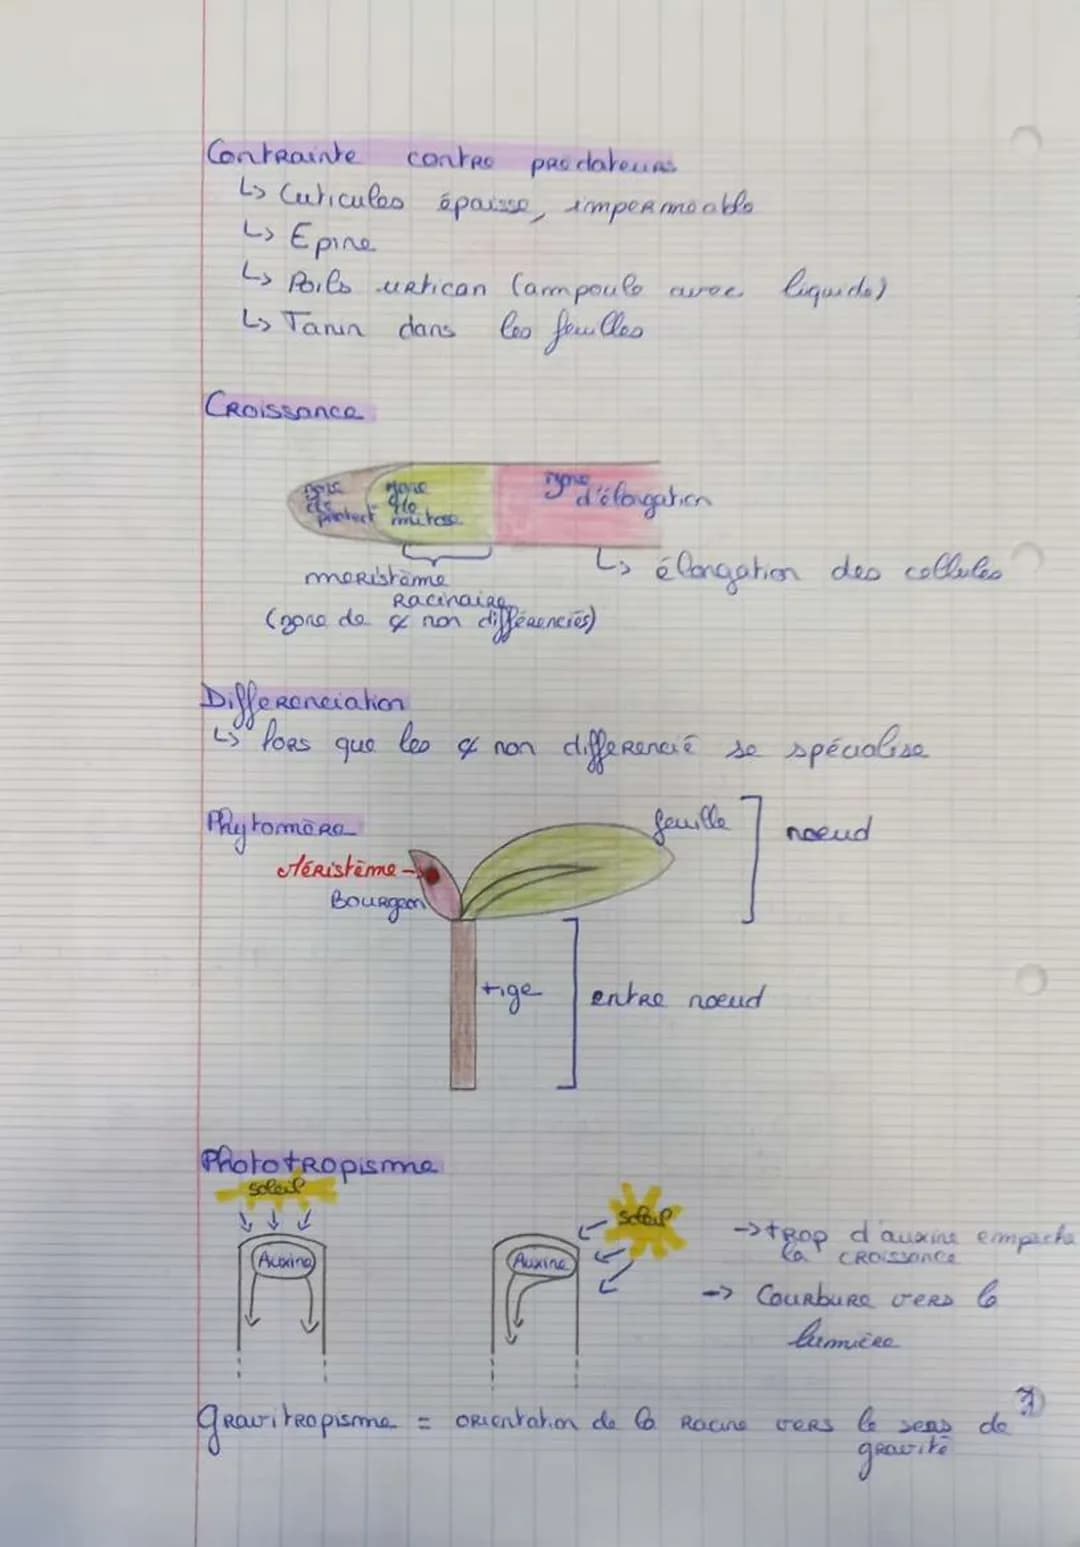 Contrainte contre prédateurs
↳ Cuticules épaisse, imperméable
↳ Epine
↳ Poils urtican (ampoule avec liquide)
↳ Tanin dans les feuilles
Croissance
zone de protect°
zone de mitose
zone d'élongation
↳ élongation des cellules
meristème
Racinaire
(zone de ȼ non différenciés)
Différenciation
↳ lors que les ȼ non differencié se spécialise
Phytomère
feuille
noeud
Méristème
Bourgeon
tige
entre noeud
Phototropisme
soleil
Auxine
soleil
Auxine
-> trop d'auxine empêche
la croissance
-> Courbure vers la
lumière
gravitropisme = orientation de la racine vers le sens de
gravité